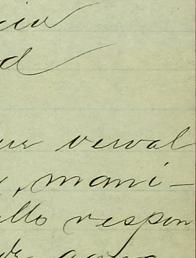 cia
d
ue verval
, mani-
llo respon